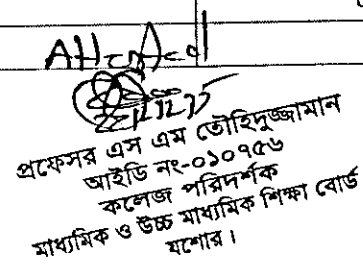 Attested
প্রফেসর এস এম তৌহিদুজ্জামান
আইডি নং-০১০৭৫৬
কলেজ পরিদর্শক
মাধ্যমিক ও উচ্চ মাধ্যমিক শিক্ষা বোর্ড
যশোর।